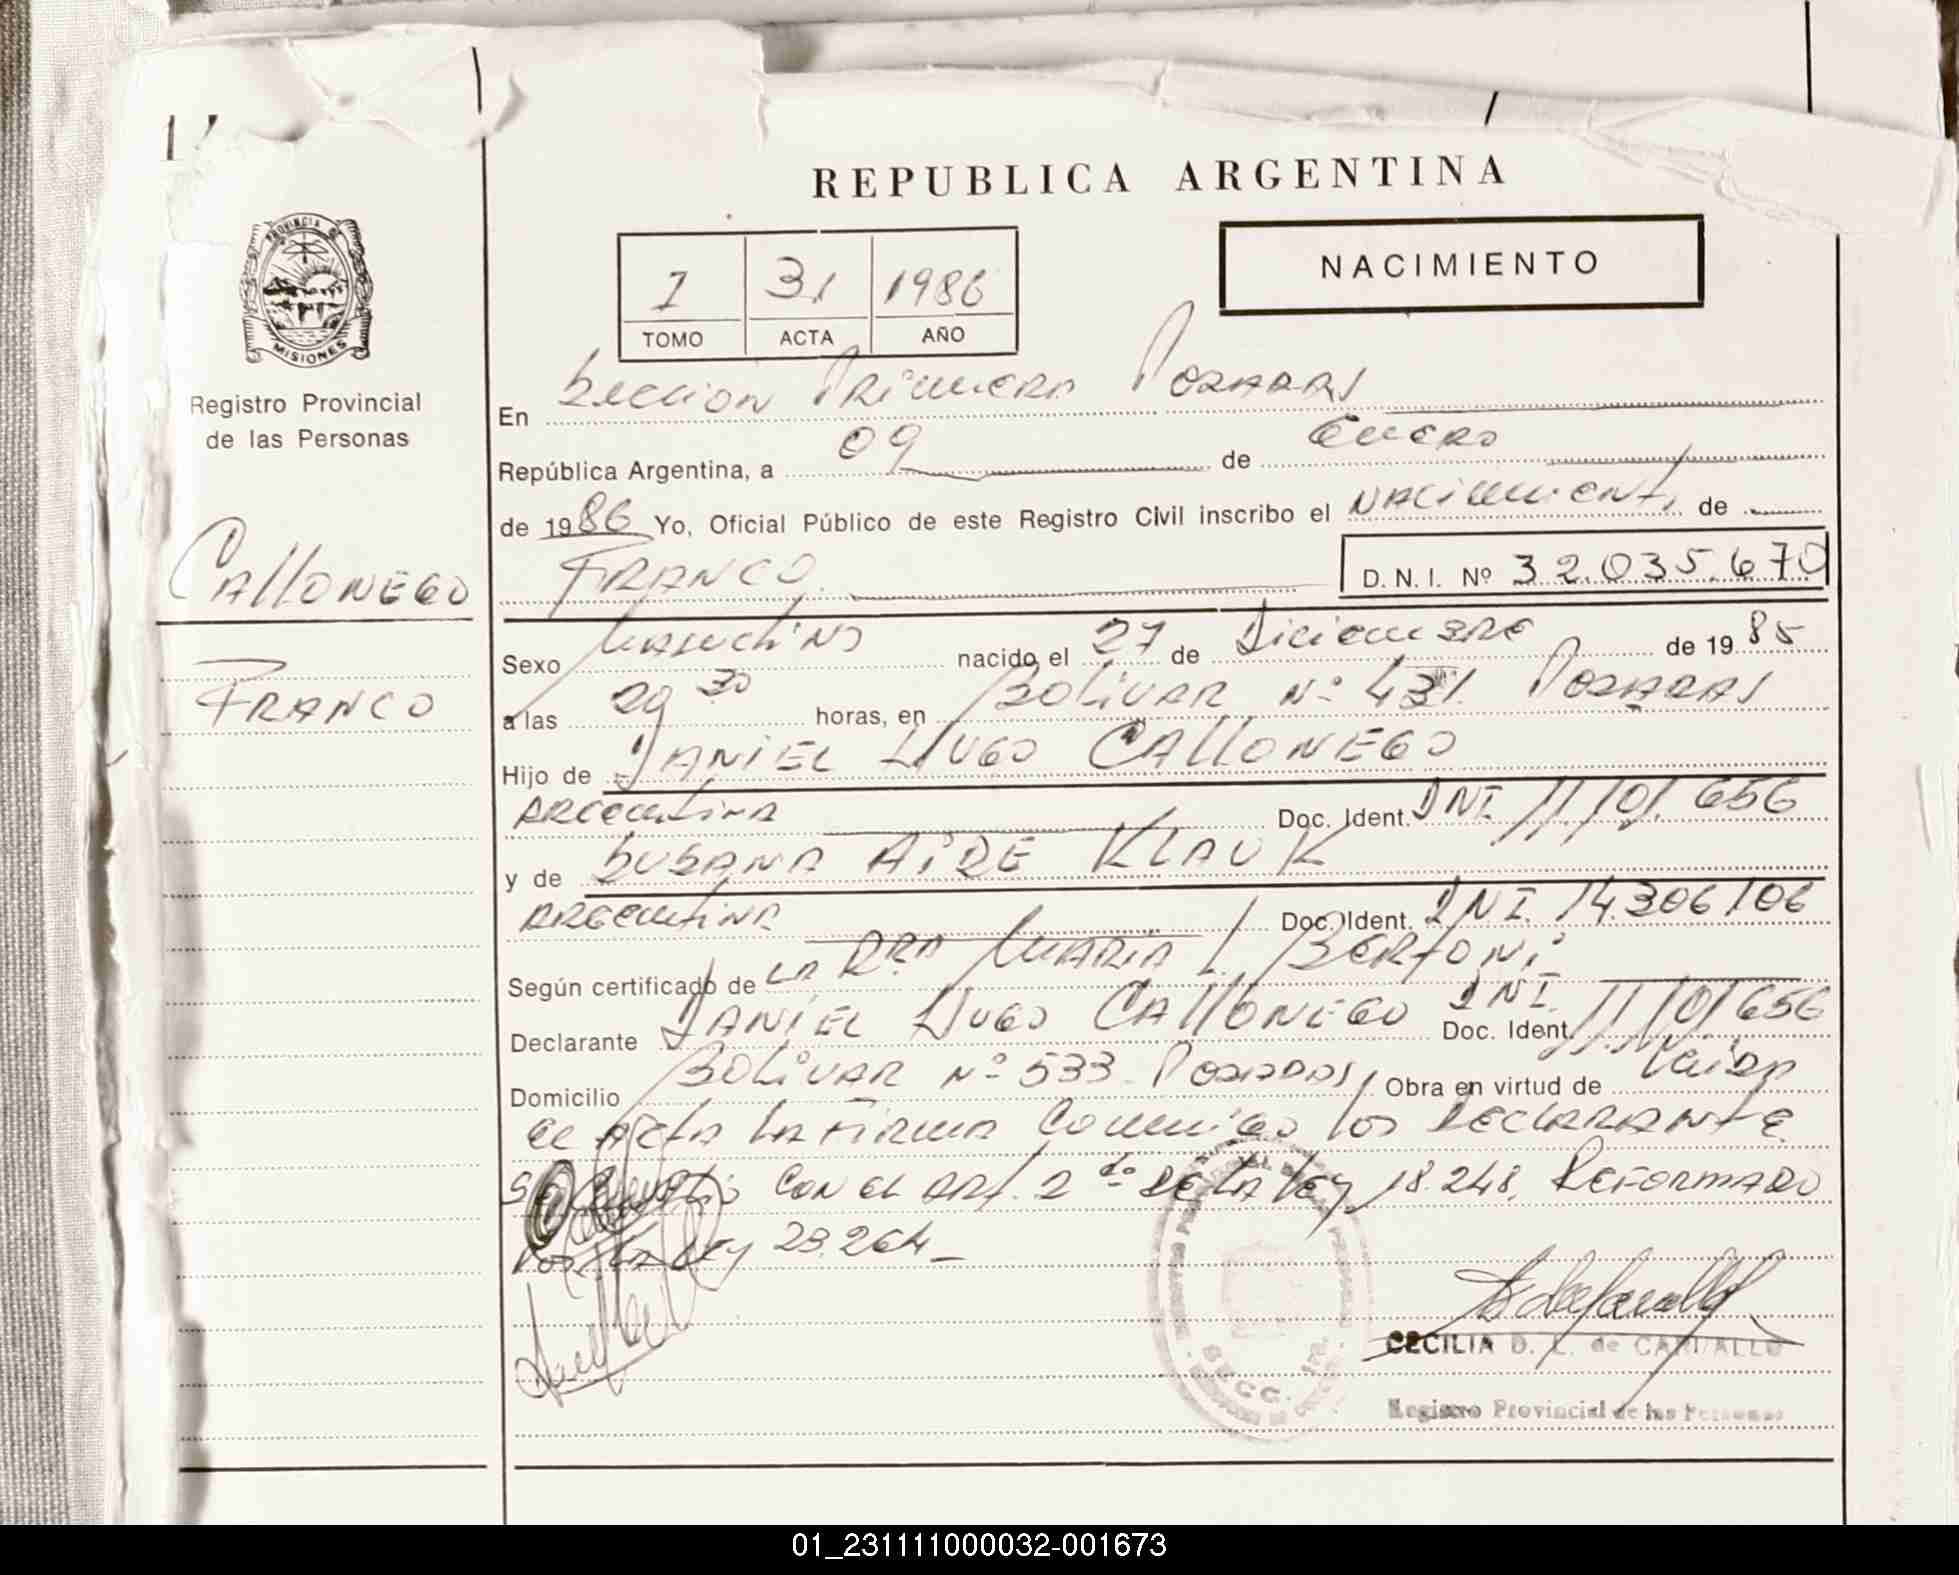 REPUBLICA ARGENTINA
PROVINCIA DE
MISIONES
Registro Provincial
de las Personas
CALLONEGO
FRANCO
1 31 1986
TOMO ACTA AÑO
NACIMIENTO
En Seccion Primera Posadas
República Argentina, a 09 de Enero
de 1986 Yo, Oficial Público de este Registro Civil inscribo el NACIMIENTO de
FRANCO D.N.I. Nº 32.035.670
Sexo Masculino nacido el 27 de Diciembre de 1985
a las 20 30 horas, en BOLIVAR Nº 431 POSADAS
Hijo de DANIEL HUGO CALLONEGO
Argentina Doc. Ident. DNI 11.101.656
y de SUSANA AIDE KLAUK
Argentina Doc. Ident. DNI. 14.306106
Según certificado de LA DRA MARIA L. BERTONI
Declarante DANIEL HUGO CALLONEGO Doc. Ident. DNI. 11.101656
Domicilio BOLIVAR Nº 533 POSADAS Obra en virtud de Leida
el Acta la firma conmigo los Declarante
con el Art. 2 do de la ley 18.248. Reformado
Por la ley 23.264_
SECC. 1ra.
CECILIA D. L. de CARVALLO
Registro Provincial de las Personas
01_231111000032-001673